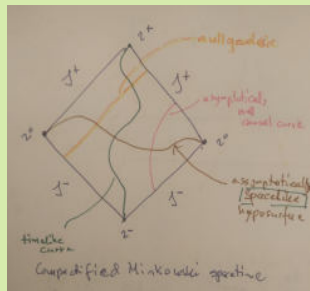 i⁺
null geodesic
𝒥⁺
𝒥⁺
asymptotically
null
causal curve
i⁰
i⁰
𝒥⁻
𝒥⁻
assymptotically
spacelike
hypersurface
timelike
curve
i⁻
Compactified Minkowski spacetime